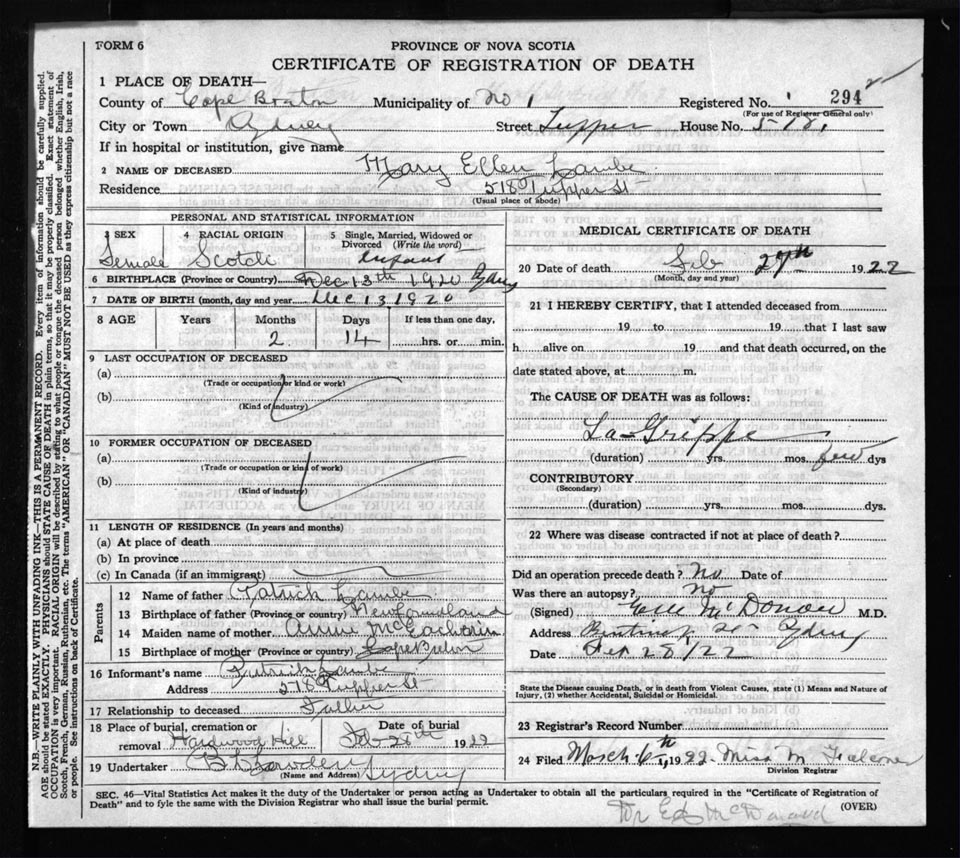 FORM 6
PROVINCE OF NOVA SCOTIA
CERTIFICATE OF REGISTRATION OF DEATH
1 PLACE OF DEATH—
County of Cape Breton Municipality of No 1 Registered No. 294
(For use of Registrar General only)
City or Town Sydney Street Tupper House No. 518
If in hospital or institution, give name
2 NAME OF DECEASED Mary Ellen Lambe
Residence 518 Tupper St
(Usual place of abode)
PERSONAL AND STATISTICAL INFORMATION
3 SEX 4 RACIAL ORIGIN 5 Single, Married, Widowed or
Divorced (Write the word)
Female Scotch Infant
6 BIRTHPLACE (Province or Country) Dec 13th 1920 Sydney
7 DATE OF BIRTH (month, day and year) Dec 13 1920
8 AGE Years Months Days If less than one day,
2 14 hrs. or min.
9 LAST OCCUPATION OF DECEASED
(a)
(Trade or occupation or kind or work)
(b)
(Kind of industry)
10 FORMER OCCUPATION OF DECEASED
(a)
(Trade or occupation or kind of work)
(b)
(Kind of industry)
11 LENGTH OF RESIDENCE (In years and months)
(a) At place of death
(b) In province
(c) In Canada (if an immigrant)
Parents
12 Name of father Patrick Lambe
13 Birthplace of father (Province or country) Newfoundland
14 Maiden name of mother Annie McEachern
15 Birthplace of mother (Province or country) Cape Breton
16 Informant's name Patrick Lambe
Address 518 Tupper St
17 Relationship to deceased Father
18 Place of burial, cremation or Date of burial
removal Hardwood Hill Feb 28th 1922
19 Undertaker Sydney
(Name and Address)
MEDICAL CERTIFICATE OF DEATH
20 Date of death Feb 27th 1922
(Month, day and year)
21 I HEREBY CERTIFY, that I attended deceased from
19 to 19 that I last saw
h alive on 19 and that death occurred, on the
date stated above, at m.
The CAUSE OF DEATH was as follows:
La-Grippe
(duration) yrs. mos. few dys
CONTRIBUTORY
(Secondary)
(duration) yrs. mos. dys.
22 Where was disease contracted if not at place of death?
Did an operation precede death? No Date of
Was there an autopsy? no
(Signed) M.D.
Address Sydney
Date Feb 28/22
State the Disease causing Death, or in death from Violent Causes, state (1) Means and Nature of
Injury, (2) whether Accidental, Suicidal or Homicidal.
23 Registrar's Record Number
24 Filed March 6th 1922 Miss M
Division Registrar
SEC. 46—Vital Statistics Act makes it the duty of the Undertaker or person acting as Undertaker to obtain all the particulars required in the "Certificate of Registration of
Death" and to fyle the same with the Division Registrar who shall issue the burial permit. (OVER)
Dr Ed McDonald
N.B.—WRITE PLAINLY WITH UNFADING INK—THIS IS A PERMANENT RECORD. Every item of information should be carefully supplied.
AGE should be stated EXACTLY. PHYSICIANS should STATE CAUSE OF DEATH in plain terms, so that it may be properly classified. Exact statement of
OCCUPATION is very important. RACIAL ORIGIN will be described by stating to what people or tongue the deceased person belonged whether English, Irish,
Scotch, French, German, Russian, Ruthenian, etc. The terms "AMERICAN" OR "CANADIAN" MUST NOT BE USED as they express citizenship but not a race
or people. See instructions on back of Certificate.